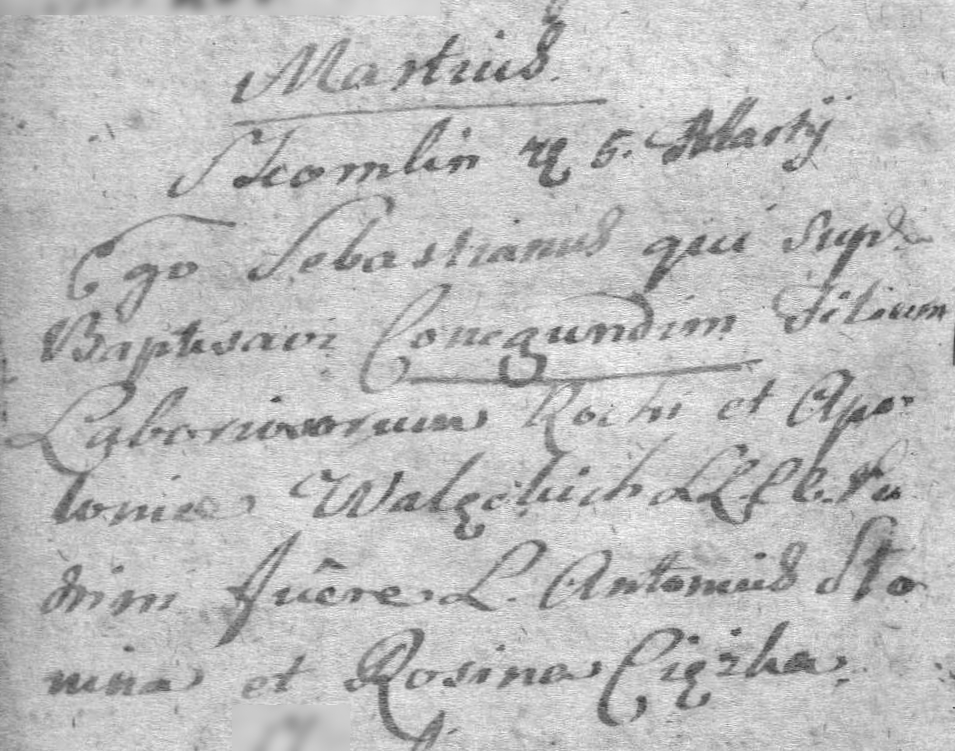 Martius
Skomlin 5. Martij
Ego Sebastianus qui sup
Baptisavi Conegundim filiam
Laboriosorum Rochi et Apo-
lonia LL CC. Pa
trini fuêre L. Antonius Sto
nina et Rosina